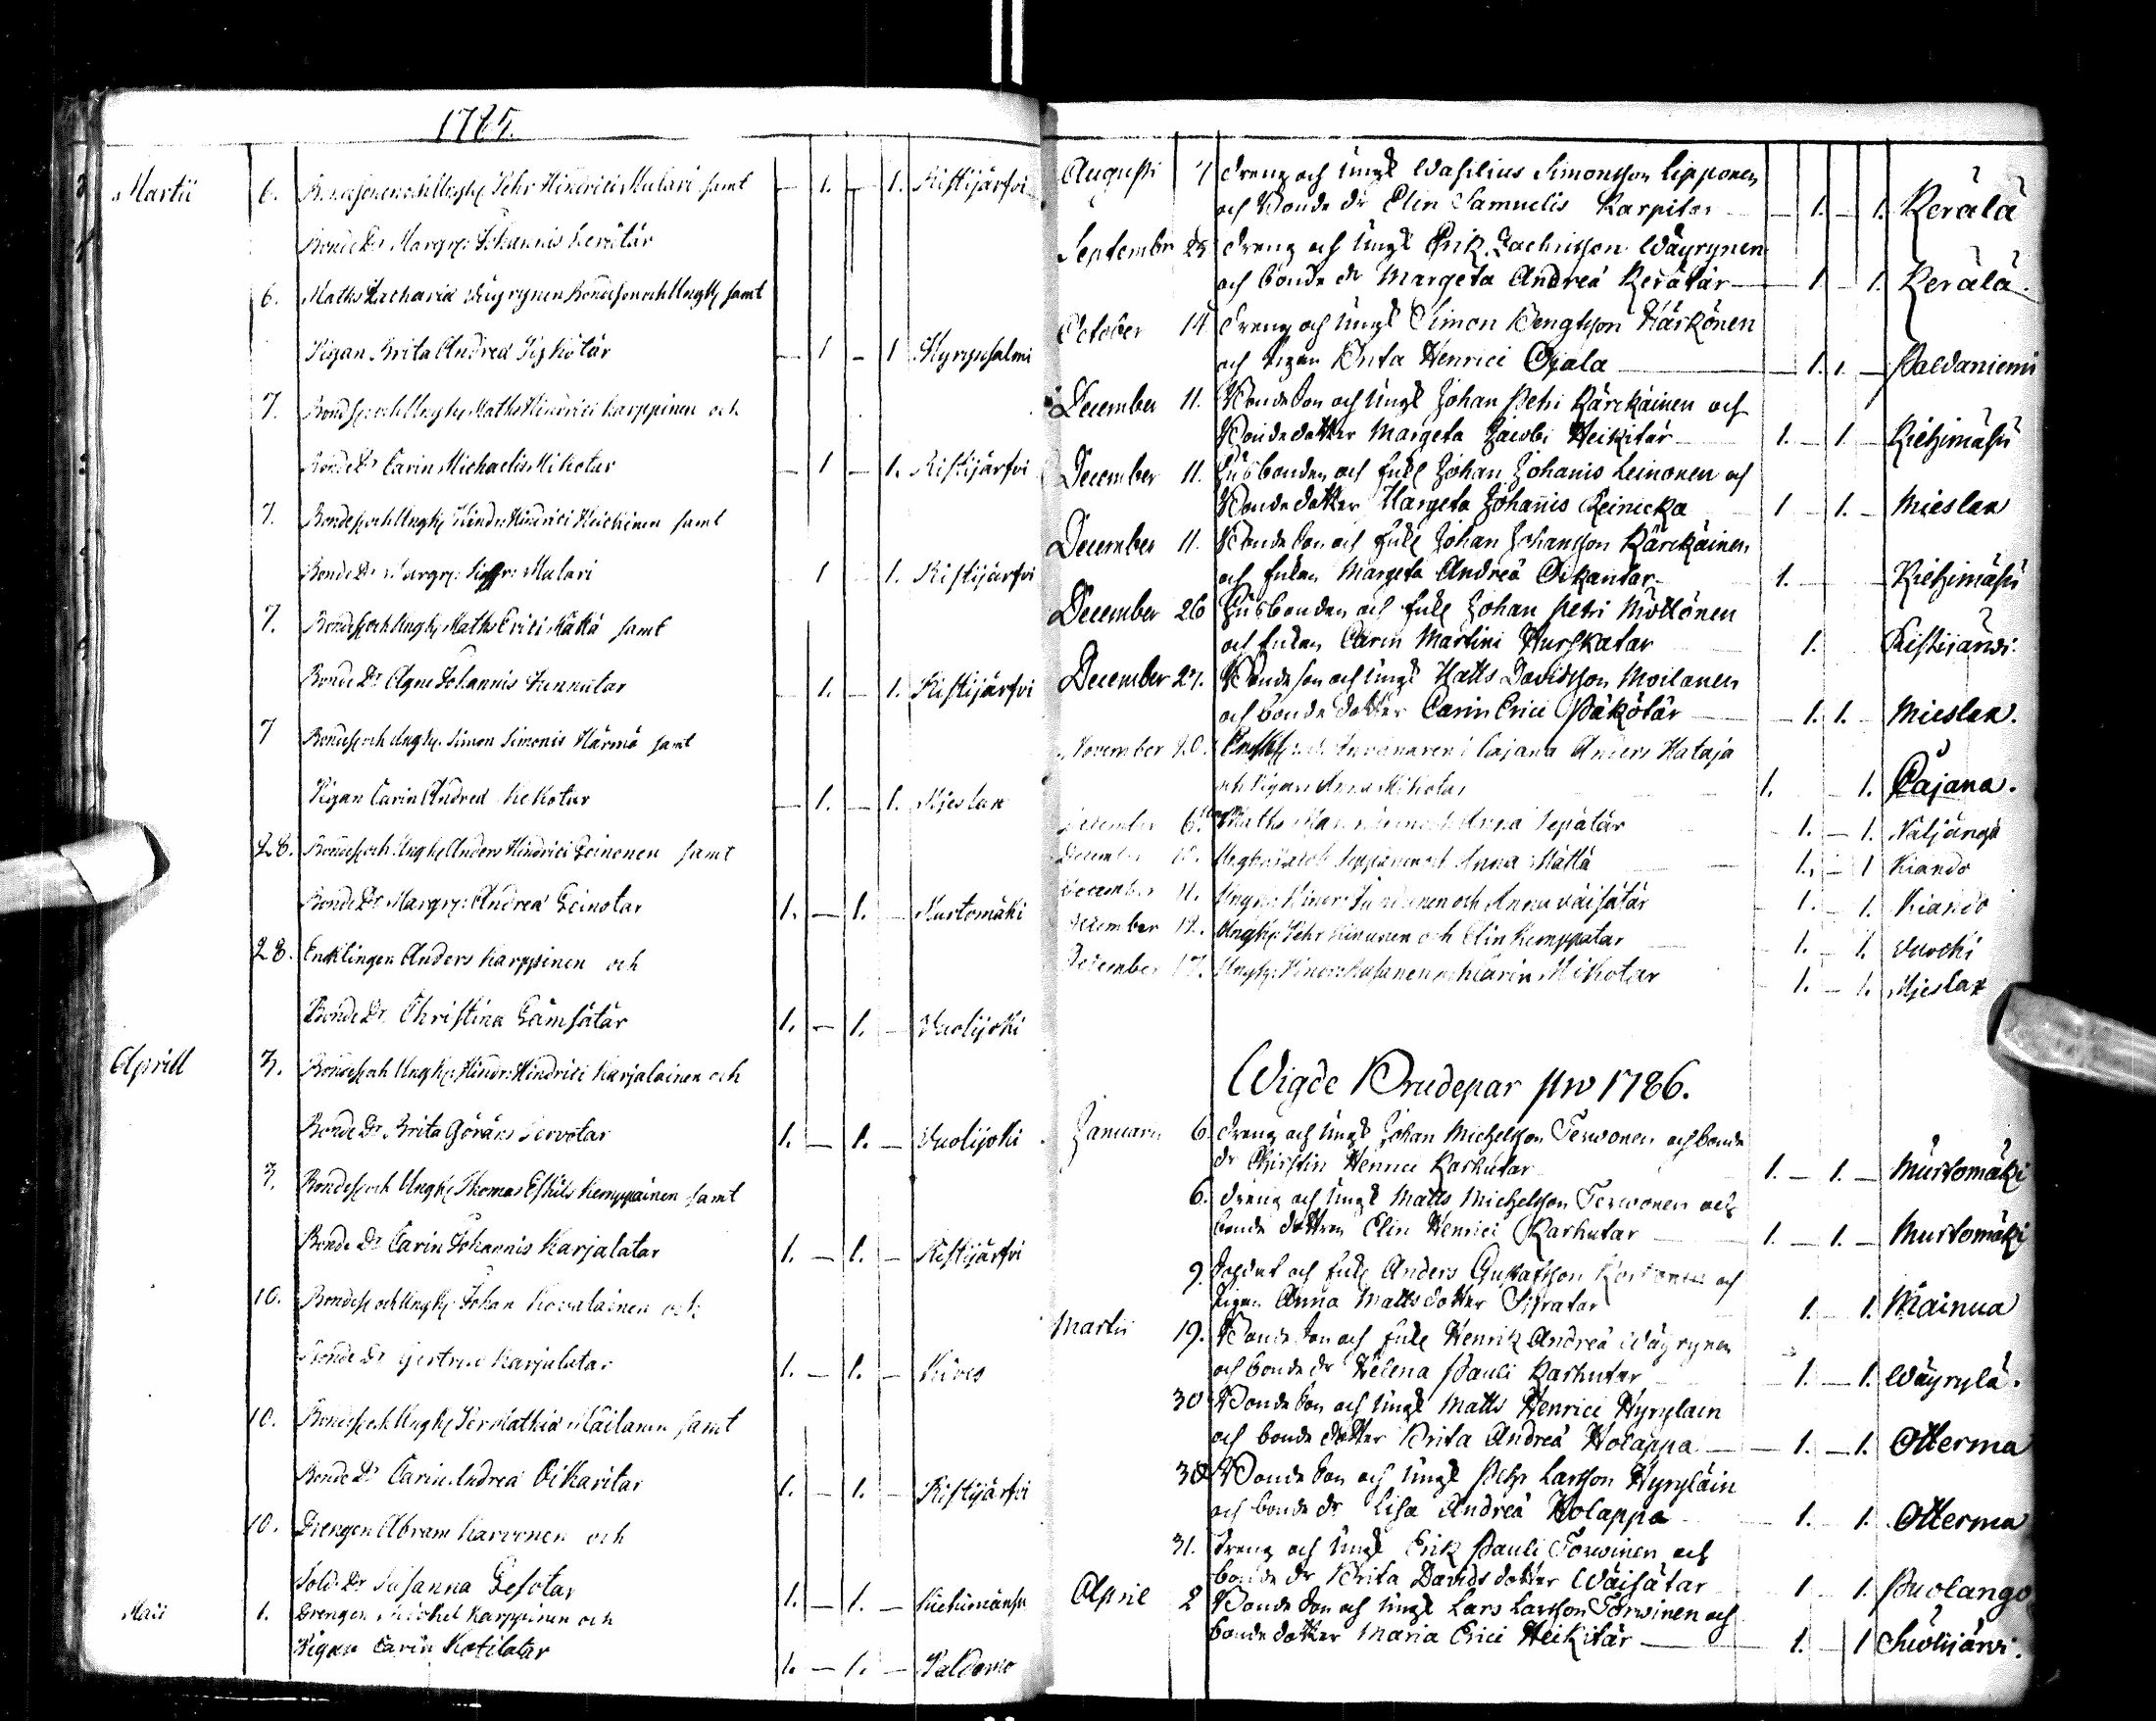 1785.
Martii 6. Bondesonen och Ungk: Pehr Hindrici Mulari samt — 1. — 1. Kistijärfvi
Bonde Dr Margr: Johannis Kerätär
6. Maths Zachariæ Väyrynen Bondeson och Ungk: samt
Pigan Brita Andreæ — 1 — 1 Hyrynsalmi
7. Bondes: och Ungk: Maths Hindrici Karppinen och
Bonde Dr Carin Michaelis Mikotar — 1 — 1. Ristijärfvi
7. Bondes: och Ungk: Hindr: Hindrici Heickinen samt
Bonde Dr Margr: Mulari 1 1. Ristijärfvi
7. Bondes: och Ungk: Maths Erici Mättä samt
Bonde Dr Agne Johannis — 1. — 1. Ristijärfvi
7 Bondes: och Ungk: Simon Simonis Härmä samt
Pigan Carin Andreæ Kekotar — 1. — 1. Mieslax
28. Bondes: och Ungk: Anders Hindrici Leinonen samt
Bonde Dr Margr: Andreæ Leinotar 1. — 1. — Murtomäki
28. Enklingen Anders Karppinen och
Bonde Dr Christina Lämsätär 1. — 1. — Vuolijoki
Aprill 3. Bondes: och Ungk: Hindr: Hindrici Karjalainen och
Bonde Dr Brita Görans Servotar 1. — 1. — Vuolijoki
3. Bondes: och Ungk: Thomas Eskils Kemppainen samt
Bonde Dr Carin Johannis Karjalatar 1. — 1. — Ristijärfvi
10. Bondes: och Ungk: Johan Kovalainen och
Bonde Dr Gertrud Karjalatar 1. — 1. — Kives
10. Bondes: och Ungk: Per Mathiæ Moilanen samt
Bonde Dr Carin Andreæ Oikaritar 1. — 1. — Ristijärfvi
10. Drengen Abram Karvonen och
Sold: Dr Susanna Lesotar 1. — 1. —
Maii 1. Drengen Michel Karppinen och
Pigan Carin Kotilatar 1. — 1. — Paldamo
Augusti 7 Dreng och Ungk Wasilius Simonsson Lipponen
och Bonde dr Elin Samuelis Karpitar — 1. — 1. Kerälä
Septembr 25 Dreng och Ungk Erik Zachrisson Wäyrynen
och bonde dr Margeta Andreä Kerätär — 1 — 1. Kerälä.
October 14 Dreng och Ungk Simon Bengtsson Härkönen
och Pigan Brita Henrici Ojala — 1. 1. — Paldaniemi
December 11. Bonde Son och Ungk Johan Petri Kärckäinen och
Bonde dotter Margeta Jacobi Heikitär 1. — 1. —
December 11. Husbonden och Enkl Johan Johanis Leinonen och
Bonde dotter Margeta Johañis Reinicka 1 — 1. — Mieslax
December 11. Bonde Son och Enkl Johan Johansson Kärckäinen
och Enkan Margeta Andreä Oikaritar 1. —
December 26 Husbonden och Enkl Johan Petri Möttönen
och Enkan Carin Martini Hurskatar 1. Ristijärvi
December 27. Bonde son och Ungk Matts Davidsson Moilanen
och bonde dotter Carin Erici — 1. 1. — Mieslax.
November 20. i Cajana Anders Hataja
och Pigan Anna Mikotar 1. 1. Cajana.
December 6. Maths och Anna Sepätär — 1. — 1. Naljängä
December 10. Ungk: Jacob Seppänen och Anna Mättä — 1. — 1 Kiando
December 11. Ungk: Hinr: och Anna Väisätär — 1. — 1. Kiando
December 12. Ungk: Pehr Kinunen och Elin Kemppatar — 1. — 1. Vuocki
December 17. Ungk: Hinr: och Carin Mikotar — 1. — 1. Mieslax
Wigde Brudepar pro 1786.
Januarii 6. Dreng och Ungk Johan Michelsson Terwonen och bonde
dr Christin Henrici Karhutar 1. — 1. — Murtomäki
6. Dreng och Ungk Matts Michelsson Terwonen och
bonde dottren Elin Henrici Karhutar 1. — 1. — Murtomäki
9. Soldat och Enkl Anders Gustafsson och
Pigan Anna Mattsdotter 1 1. Mainua
Martii 19. Bonde Son och Enkl Henrik Andreä Wäyrynen
och bonde dr Helena Pauli Karhutar — 1. — 1. Wäyrylä.
30 Bonde Son och Ungk Matts Henrici Hyrylain
och bonde dotter Brita Andreä Holappa — 1. — 1. Otterma
30 Bonde Son och Ungk Pehr Larsson Hyryläin
och bonde dr Lisa Andreä Holappa — 1. — 1. Otterma
31. Dreng och Ungk Erik Pauli Torwinen och
bonde dr Brita Davids dotter Wäisätar 1 — 1. Puolango
April 2 Bonde Son och Ungk Lars Larsson Torwinen och
bonde dotter Maria Erici Heikitär — 1. — 1